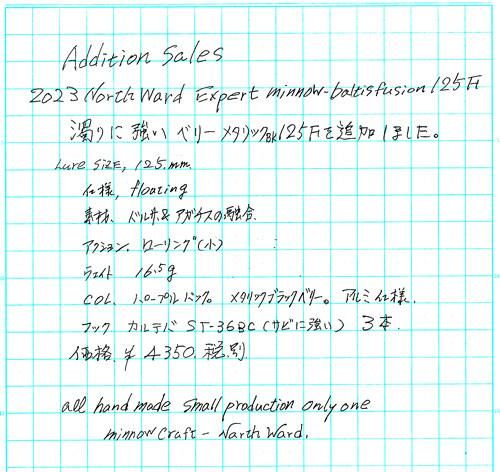 Addition Sales
2023 North Ward Expert minnow-baltisfusion 125F
濁りに強いベリーメタリックBK125Fを追加しました。
Lure SIZE, 125.mm.
仕様, floating
素材、バルサ&アガチスの融合.
アクション. ローリング(小)
ウェイト 16.5g
COL. ハローパールピンク。メタリックブラックベリー。アルミ仕様.
フック カルティバ ST-36BC(サビに強い) 3本.
価格. ¥4350. 税別
all hand made small production only one
minnow craft - North Ward.